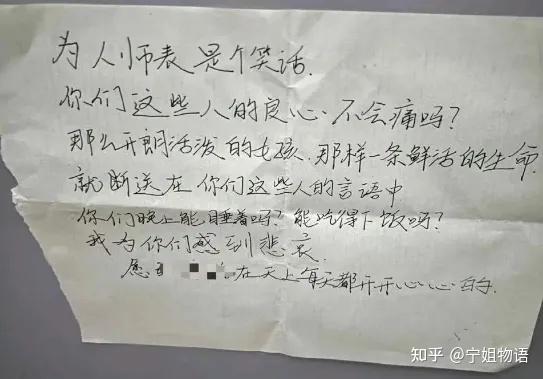 为人师表是个笑话.
你们这些人的良心.不会痛吗?
那么开朗活泼的女孩.那样一条鲜活的生命.
就断送在你们这些人的言语中
你们晚上能睡着吗?能吃得下饭吗?
我为你们感到悲哀.
愿 .在天上每天都开开心心的.
知乎 @宁姐物语